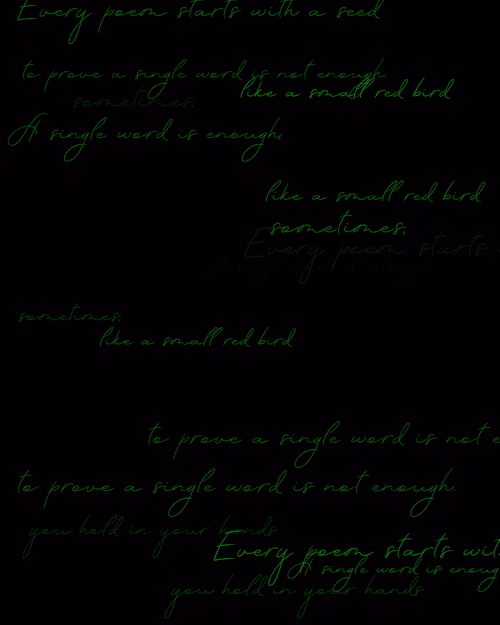 Every poem starts with a seed
to prove a single word is not enough.
like a small red bird
sometimes,
A single word is enough,
like a small red bird
sometimes,
Every poem starts
sometimes,
like a small red bird
to prove a single word is not
to prove a single word is not enough.
you hold in your hands
Every poem starts
A single word is
you hold in your hands